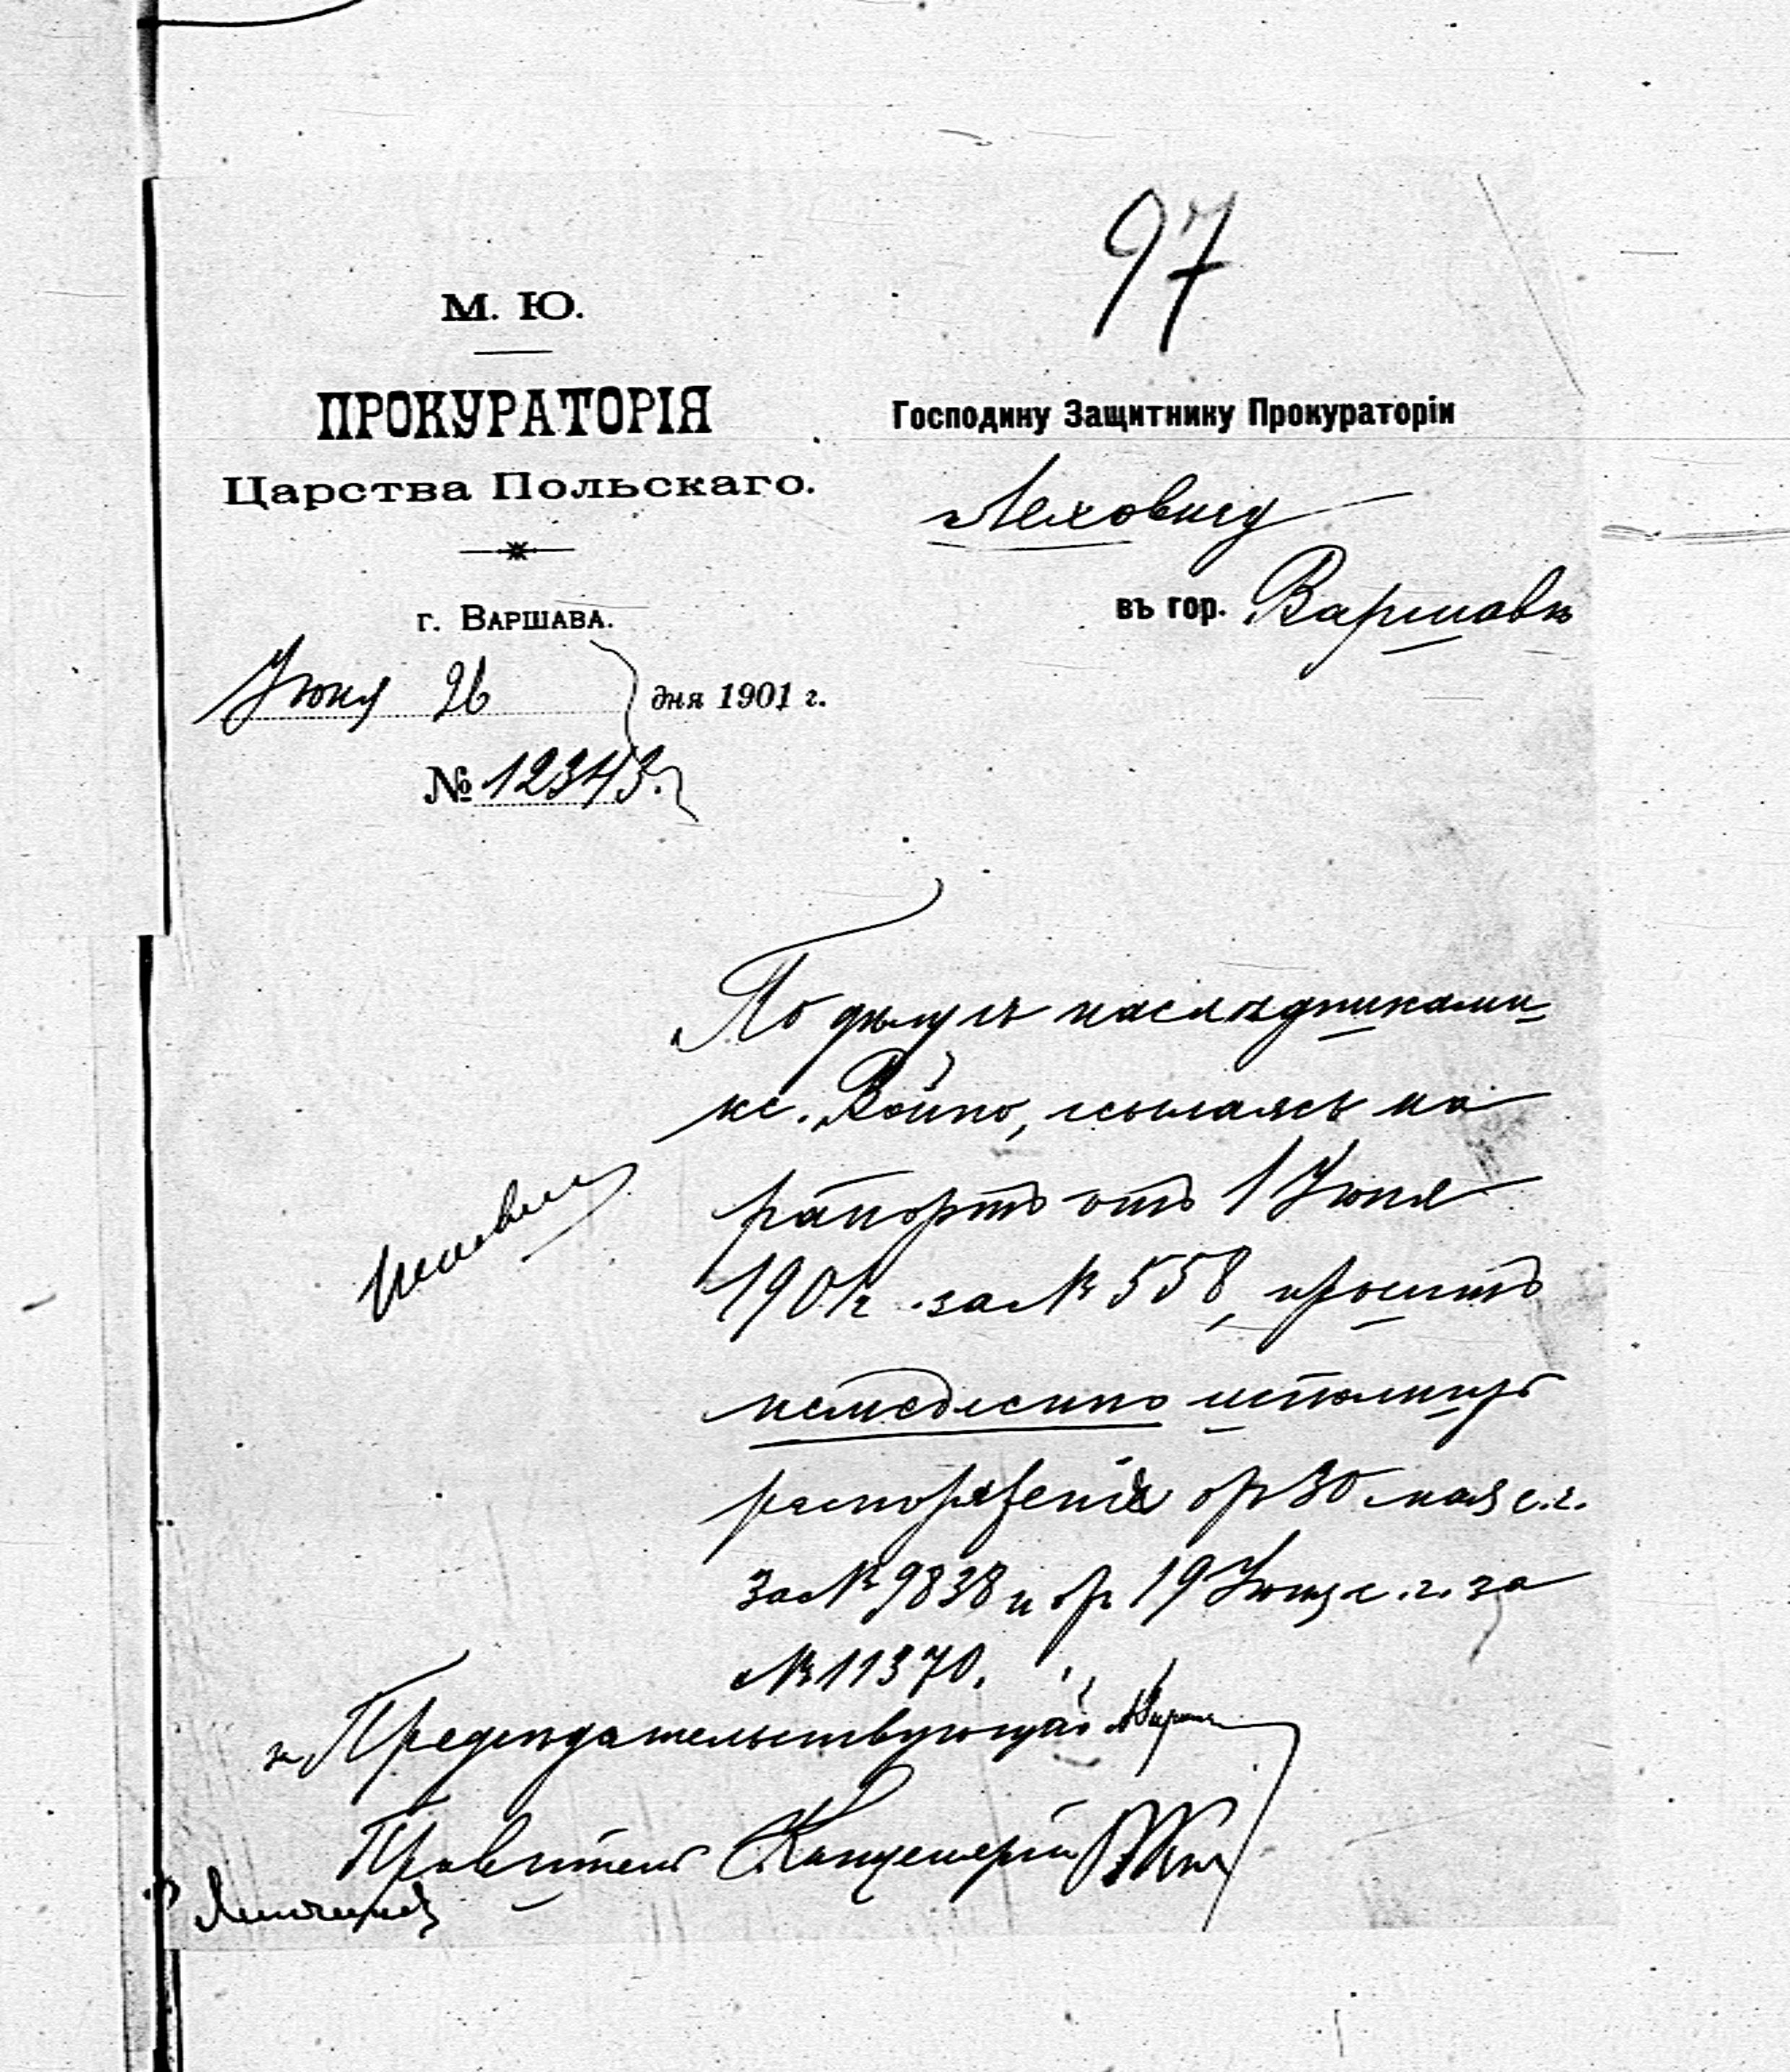 97
М. Ю.
ПРОКУРАТОРІЯ
Царства Польскаго.
г. Варшава.
Іюня 26 дня 1901 г.
№ 12343.
Господину Защитнику Прокураторіи
Леховичу
въ гор. Варшавѣ
По дѣлу съ наслѣдниками
кс. Война, ссылаясь на
рапортъ отъ 1 Іюня
1901 г. за № 558, проситъ
немедленно исполнить
распоряженія отъ 30 мая с. г.
за № 9838 и отъ 19 Іюня с. г. за
№ 11370.
Предсѣдательствующій
Правитель Канцеляріи